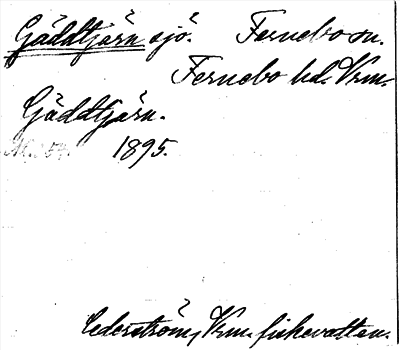 Gäddtjärn sjö. Fernebo sn.
Fernebo hd. Vrm.
Gäddtjärn.
1895.
Cederström, Vrm. fiskevatten.